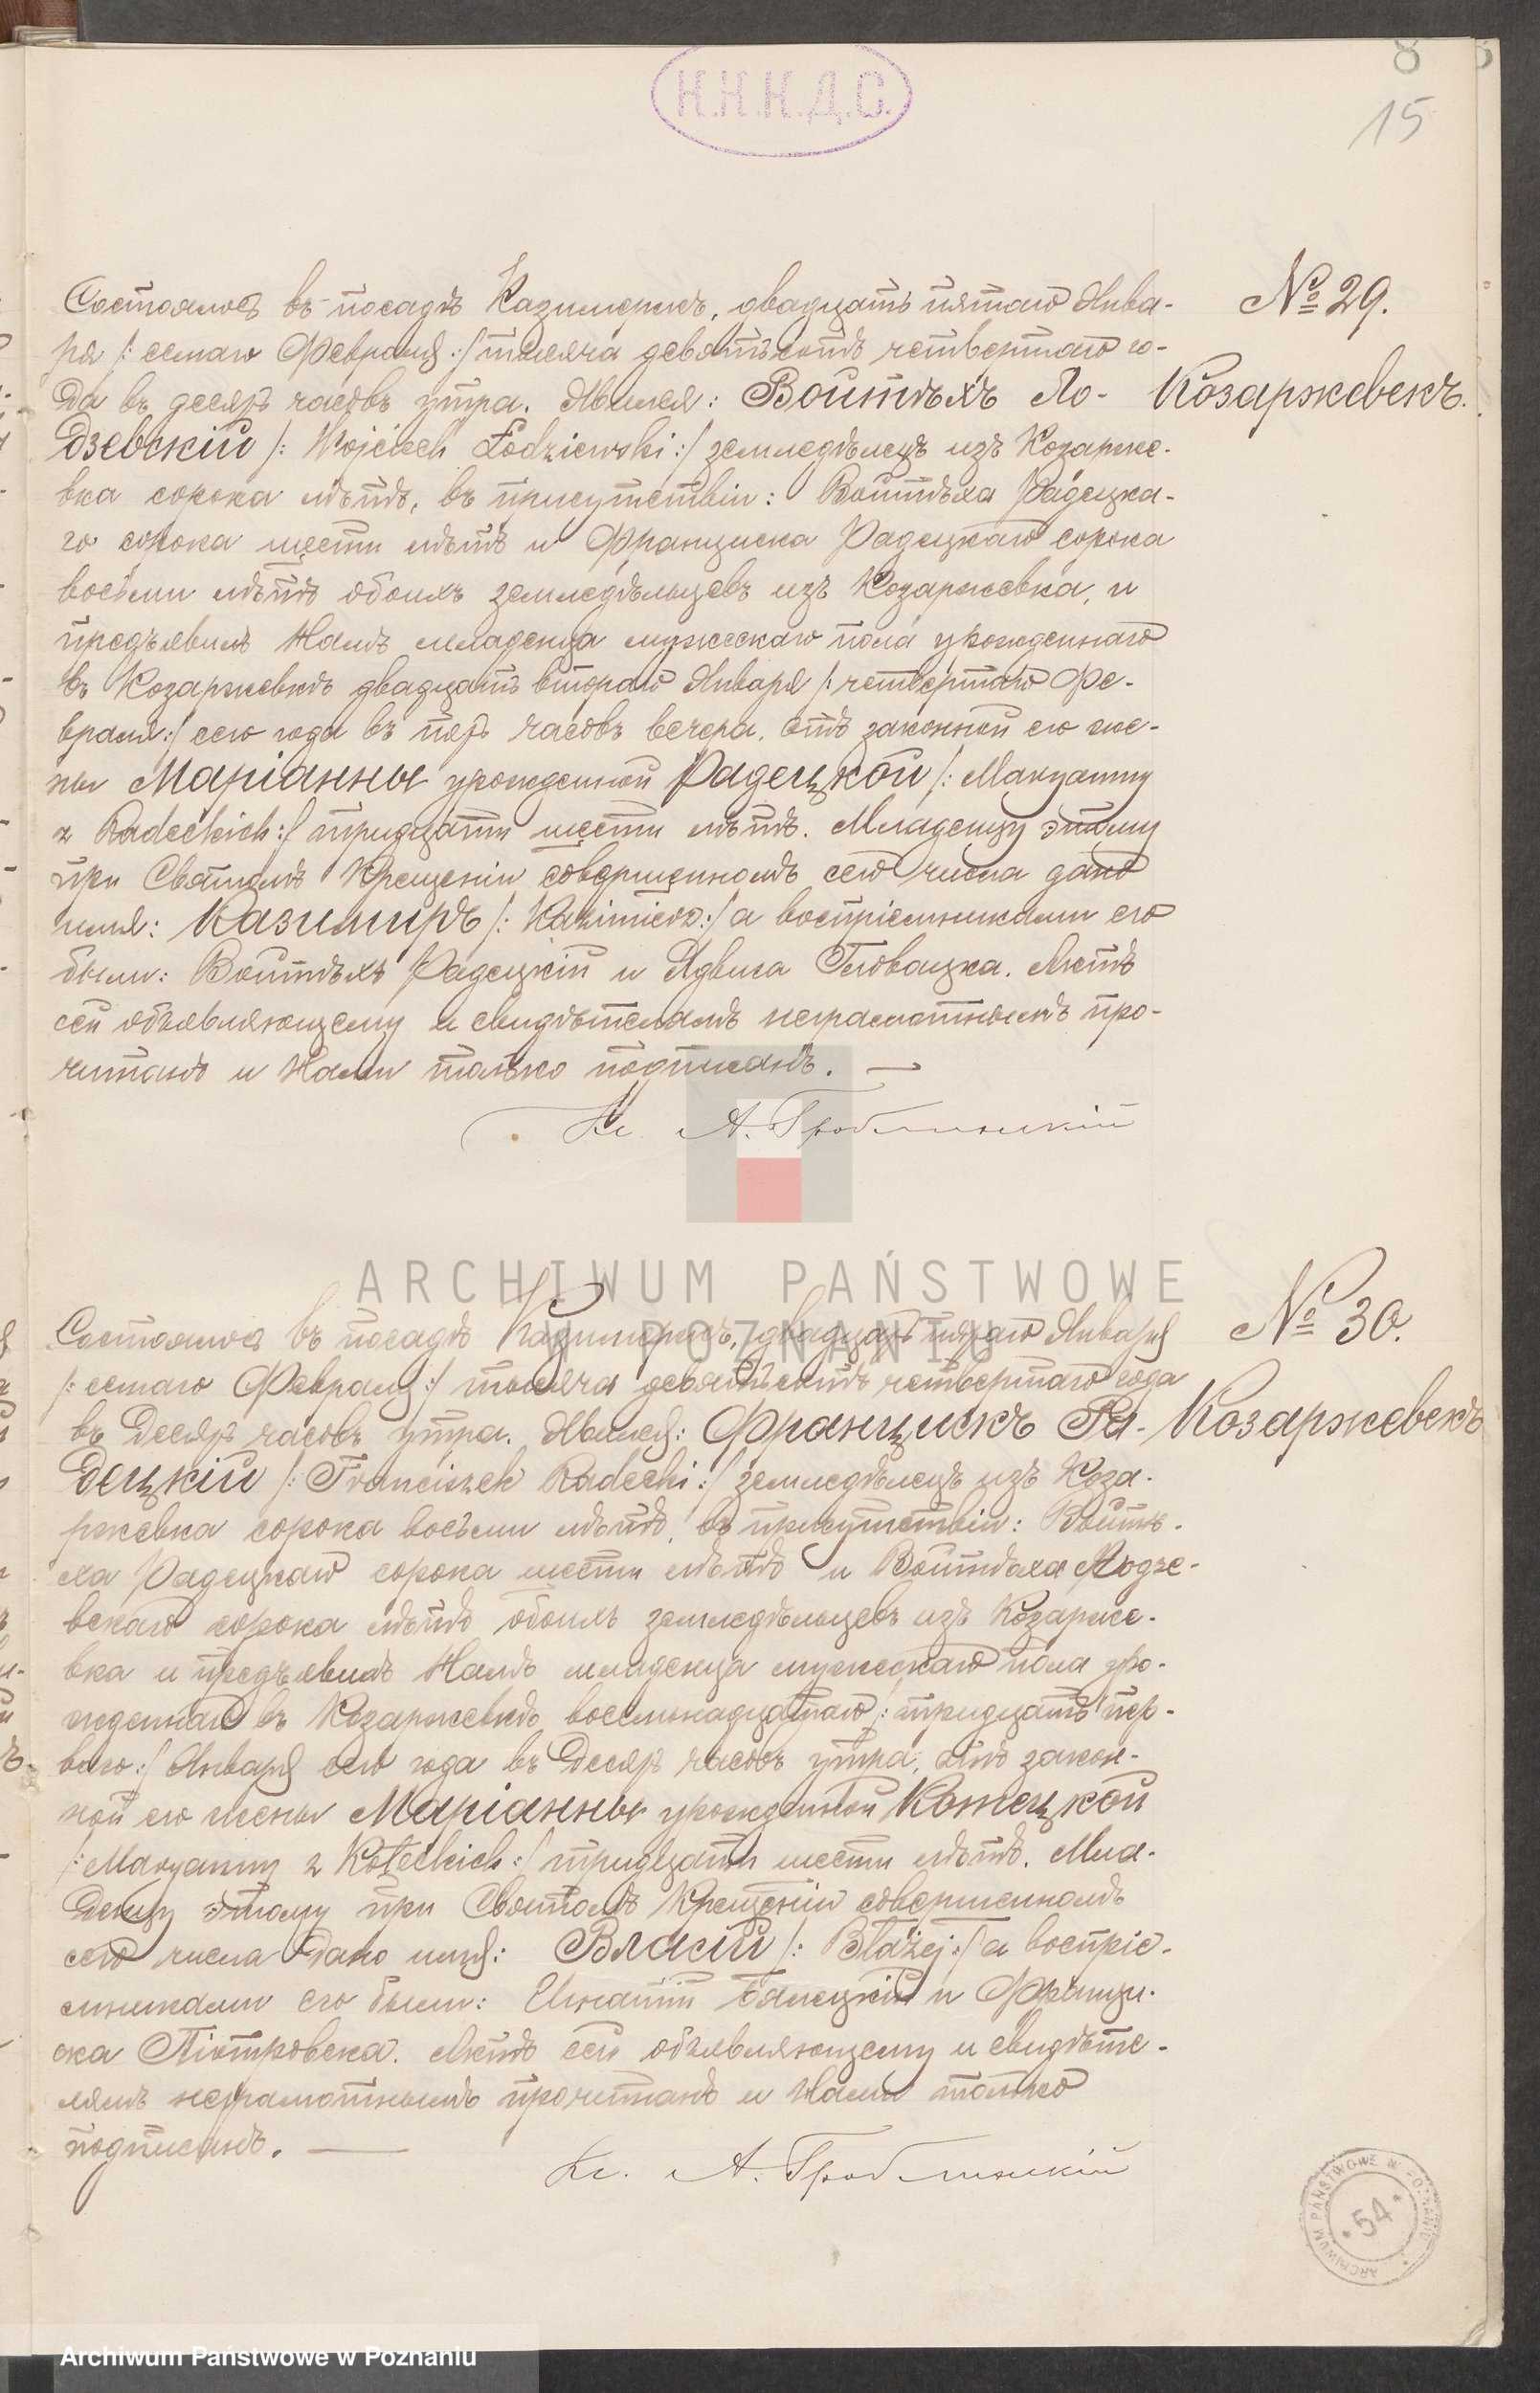 Н.Н.Н.Д.С.
8
15
№ 29.
Козаржевекъ.
Состоялось въ посадѣ Казимержъ, двадцать пятаго Янва-
ря /: седмаго Февраля :/ тысяча девятьсотъ четвертаго го-
да въ десять часовъ утра. Явился: Войтѣхъ Ло-
дзевскій /: Wojciech Łodziewski :/ земледѣлецъ изъ Козарже-
вка сорока лѣтъ, въ присутствіи: Войтѣха Радецка-
го сорока шести лѣтъ и Франциска Радецкаго сорока
восьми лѣтъ обоихъ земледѣльцевъ изъ Козаржевка, и
предъявилъ Намъ младенца мужескаго пола урожденнаго
въ Козаржевкѣ двадцать втораго Января /: четвертаго Фе-
враля :/ сего года въ пять часовъ вечера, отъ законной его же-
ны Маріанны урожденной Радецкой /: Maryanny
z Radeckich :/ тридцати шести лѣтъ. Младенцу этому
при Святомъ Крещеніи совершенномъ сего числа дано
имя: Казимиръ /: Kazimierz :/ а воспріемниками его
были: Войтѣхъ Радецкій и Ядвига Гловацка. Актъ
сей объявляющему и свидѣтелямъ неграмотнымъ про-
читанъ и Нами только подписанъ.
Кс. А. Гроблинскій
№ 30.
Козаржевекъ
Состоялось въ посадѣ Казимержъ, двадцать пятаго Января
/: седмаго Февраля :/ тысяча девятьсотъ четвертаго года
въ десять часовъ утра. Явился: Францискъ Ра-
децкій /: Franciszek Radecki :/ земледѣлецъ изъ Коза-
ржевка сорока восьми лѣтъ, въ присутствіи: Войтѣ-
ха Радецкаго сорока шести лѣтъ и Войтѣха Лодзе-
вскаго сорока лѣтъ обоихъ земледѣльцевъ изъ Козарже-
вка и предъявилъ Намъ младенца мужескаго пола уро-
жденнаго въ Козаржевкѣ восемьнадцатаго /: тридцать пер-
ваго :/ Января сего года въ десять часовъ утра, отъ закон-
ной его жены Маріанны урожденной Котецкой
/: Maryanny z Koteckich :/ тридцати шести лѣтъ. Мла-
денцу этому при Святомъ Крещеніи совершенномъ
сего числа дано имя: Власій /: Błażej :/ а воспріе-
мниками его были: Игнатій и Францис-
ка Піотровска. Актъ сей объявляющему и свидѣте-
лямъ неграмотнымъ прочитанъ и Нами только
подписанъ.
Кс. А. Гроблинскій
ARCHIWUM PAŃSTWOWE
W POZNANIU
ARCHIWUM PAŃSTWOWE W POZNANIU
* 54 *
Archiwum Państwowe w Poznaniu